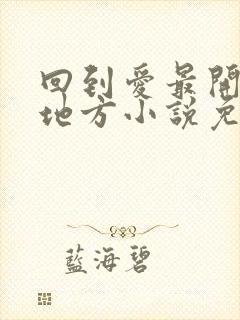 回到愛最開
地方小說免
藍海碧